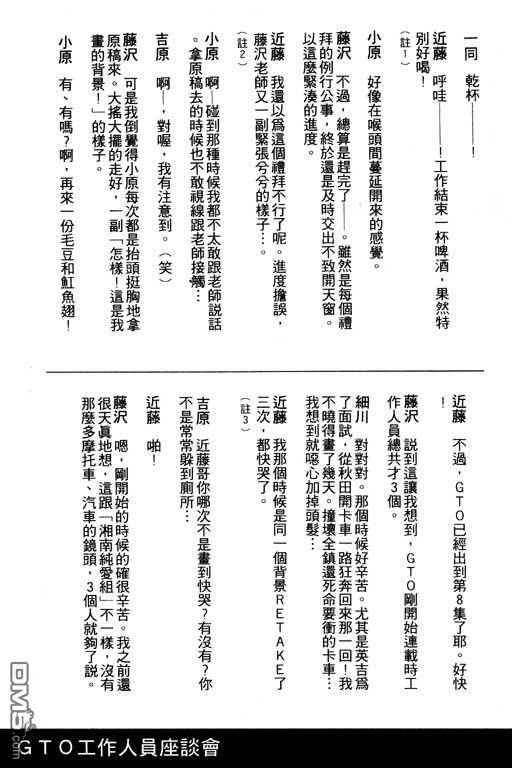 一同　乾杯———！
近藤　呼哇———！工作結束一杯啤酒，果然特
別好喝！
（註1）
小原　好像在喉頭間蔓延開來的感覺。
藤沢　不過，總算是趕完了——。雖然是每個禮
拜的例行公事，終於還是及時交出不致開天窗。
以這麼緊湊的進度。
近藤　我還以為這個禮拜不行了呢。進度擔誤，
藤沢老師又一副緊張兮兮的樣子…。
（註2）
小原　啊—碰到那種時候我都不太敢跟老師說話
。拿原稿去的時候也不敢視線跟老師接觸…
吉原　啊—，對喔，我有注意到。（笑）
藤沢　可是我倒覺得小原每次都是抬頭挺胸地拿
原稿來。大搖大擺的走好，一副「怎樣！這是我
畫的背景！」的樣子。
小原　有、有嗎？啊，再來一份毛豆和魟魚翅！
近藤　不過，GTO已經出到第8集了耶。好快
！
藤沢　說到這讓我想到，GTO剛開始連載時工
作人員總共才3個。
細川　對對對。那個時候好辛苦。尤其是英吉為
了面試，從秋田開卡車一路狂奔回來那一回！我
不曉得畫了幾天。撞壞全鎮還死命要衝的卡車…
我想到就噁心加掉頭髮…
近藤　我那個時候是同一個背景RETAKE了
三次，都快哭了。
（註3）
吉原　近藤哥你哪次不是畫到快哭？有沒有？你
不是常常躲到廁所…
近藤　啪！
藤沢　嗯，剛開始的時候的確很辛苦。我之前還
很天真地想，這跟「湘南純愛組」不一樣，沒有
那麼多摩托車、汽車的鏡頭，3個人就夠了說。
GTO工作人員座談會
DM5